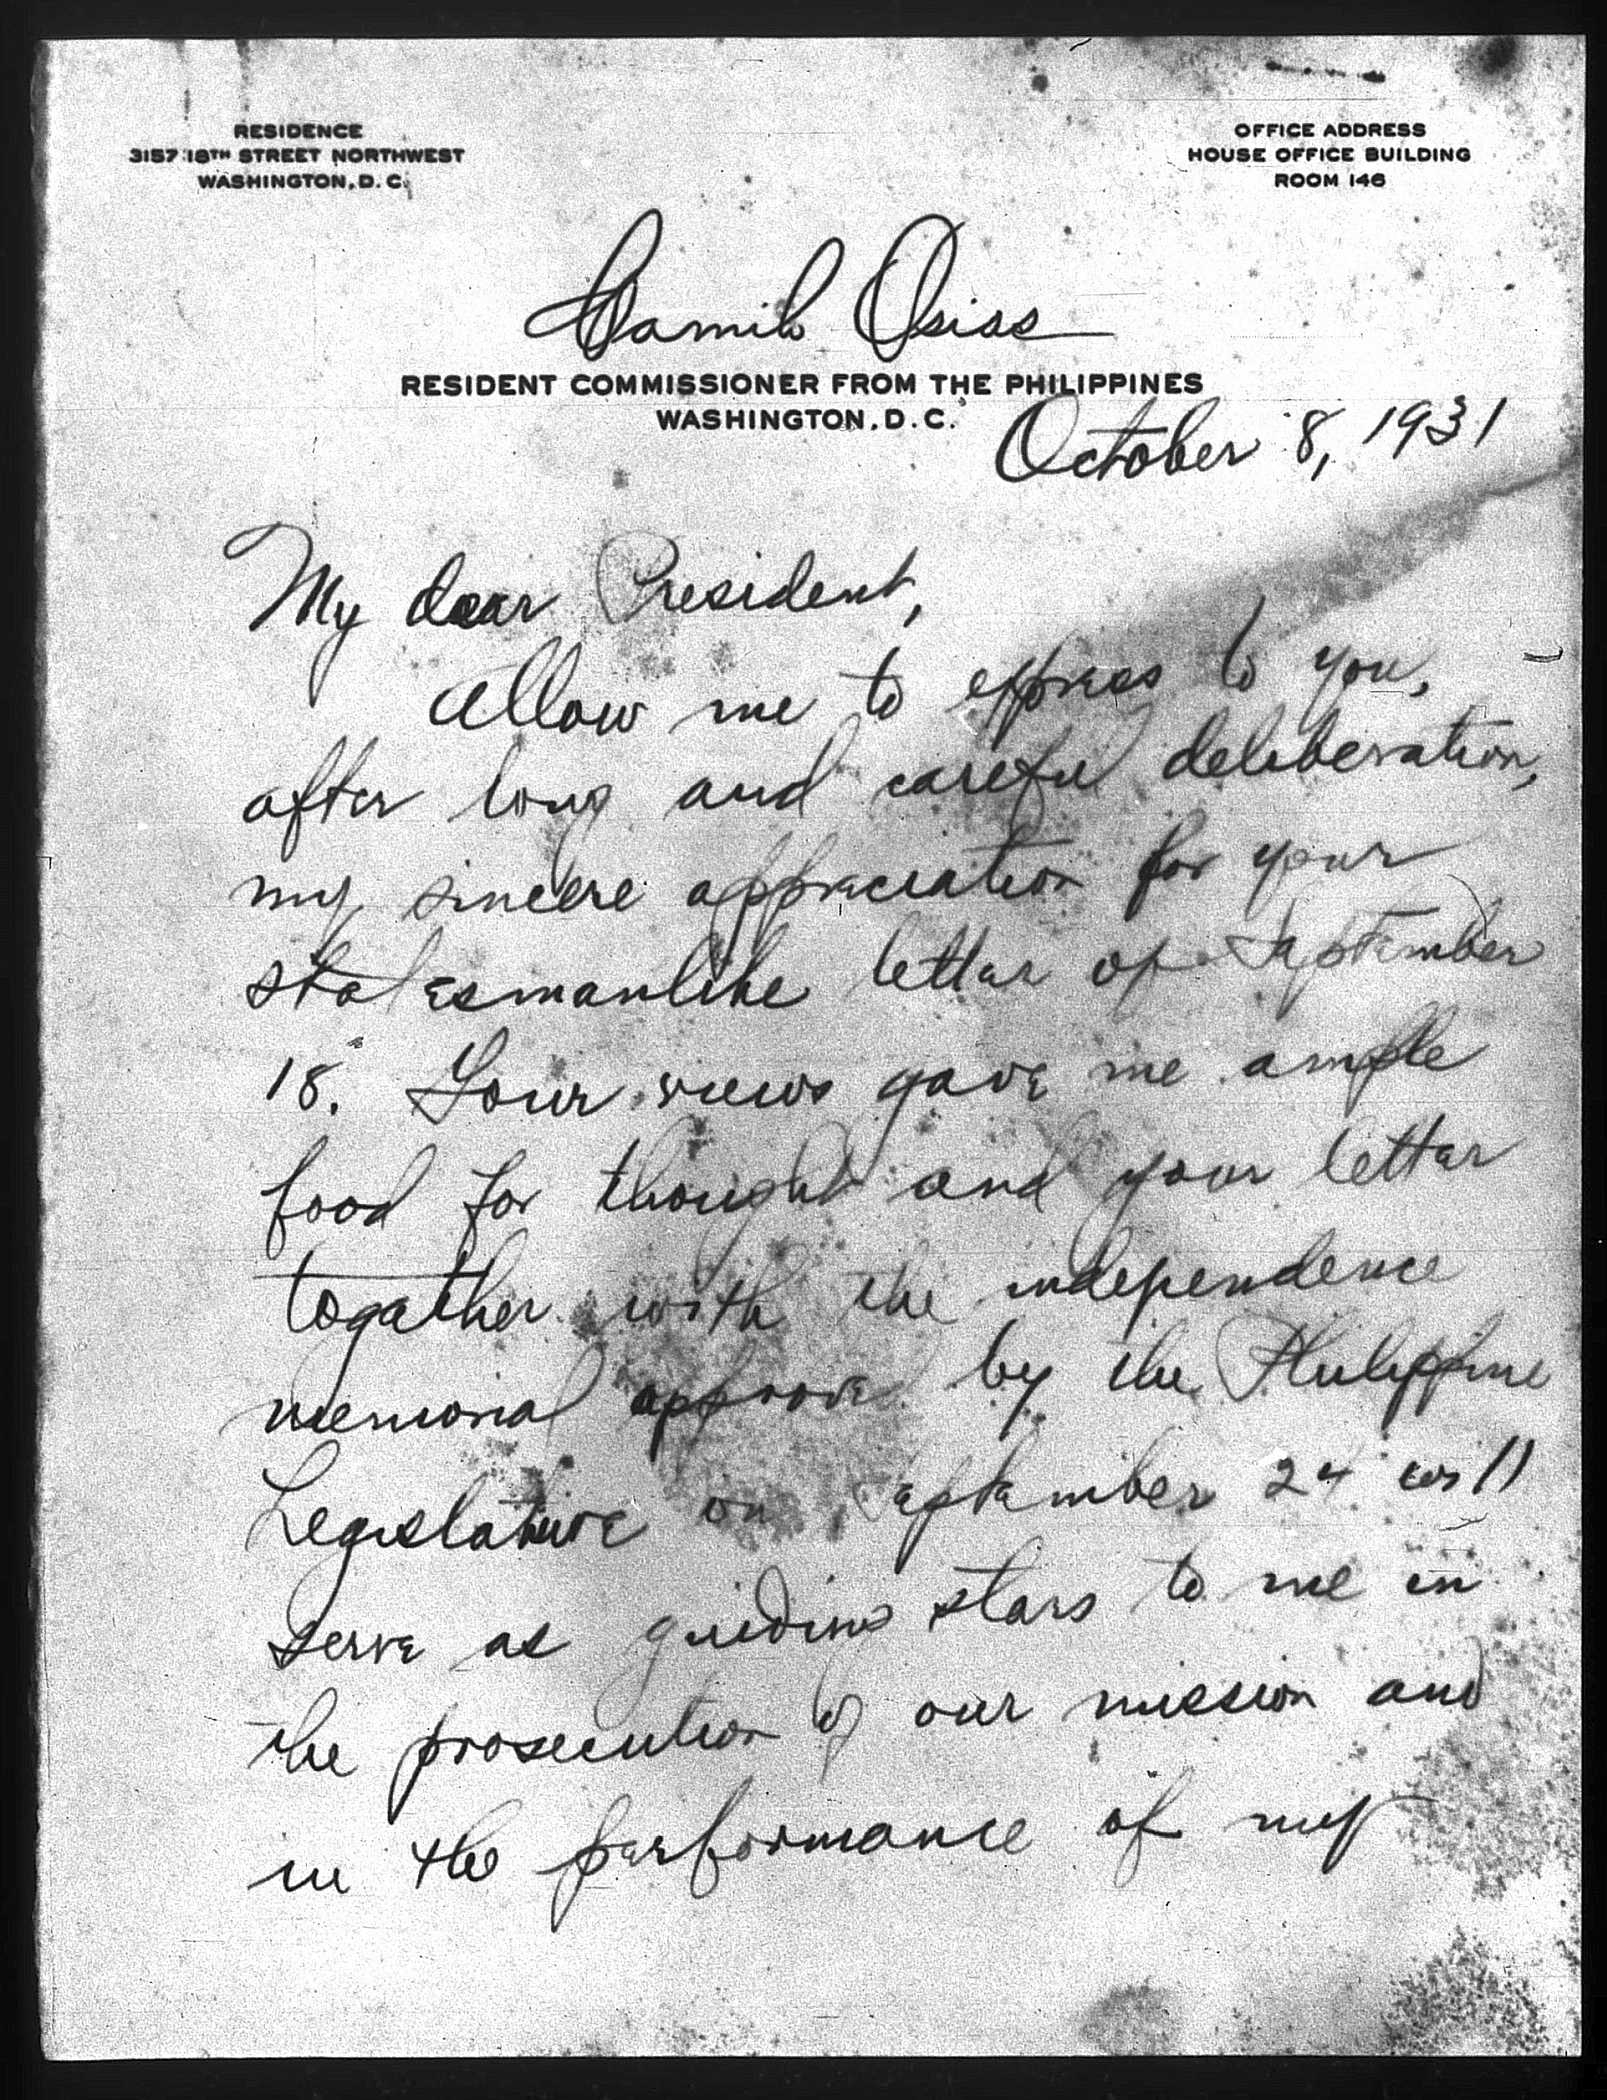 RESIDENCE
3157 18TH STREET NORTHWEST
WASHINGTON, D. C.
OFFICE ADDRESS
HOUSE OFFICE BUILDING
ROOM 146
Camilo Osias
RESIDENT COMMISSIONER FROM THE PHILIPPINES
WASHINGTON, D. C.
October 8, 1931
My dear President,
Allow me to express to you,
after long and careful deliberation,
my sincere appreciation for your
statesmanlike letter of September
18. Your views gave me ample
food for thought and your letter
together with the independence
memorial approved by the Philippine
Legislature on September 24 will
serve as guiding stars to me in
the prosecution of our mission and
in the performance of my